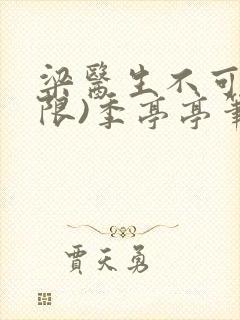 梁醫生不可
限)季亭亭筆
賈天勇